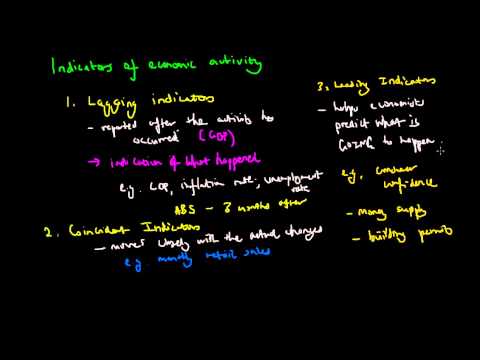 Indicators of economic activity
1. Lagging indicators
- reported after the activity has
occurred (GDP)
→ indication of what happened
e.g. GDP, inflation rate, unemployment
rate
ABS - 3 months after
2. Coincident Indicators
- moves closely with the actual changes
e.g. monthly retail sales
3. Leading Indicators
- helps economists
predict what is
GOING to happen
e.g. consumer
confidence
- money supply
- building permits